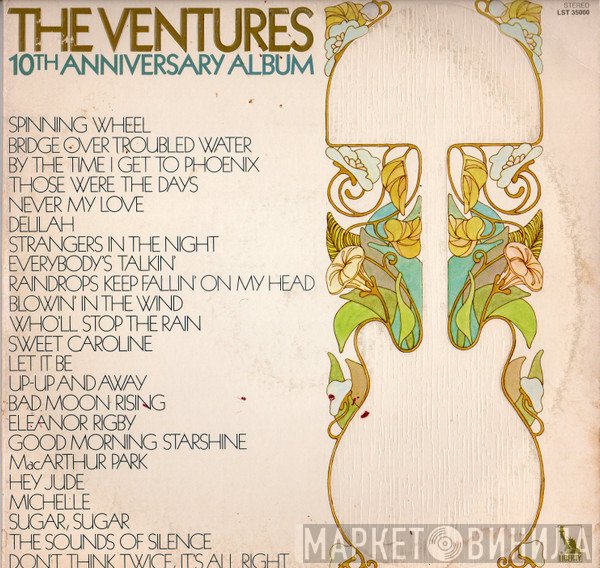 THE VENTURES
10TH ANNIVERSARY ALBUM
STEREO
LST 35000
SPINNING WHEEL
BRIDGE OVER TROUBLED WATER
BY THE TIME I GET TO PHOENIX
THOSE WERE THE DAYS
NEVER MY LOVE
DELILAH
STRANGERS IN THE NIGHT
EVERYBODY'S TALKIN'
RAINDROPS KEEP FALLIN' ON MY HEAD
BLOWIN' IN THE WIND
WHO'LL STOP THE RAIN
SWEET CAROLINE
LET IT BE
UP-UP AND AWAY
BAD MOON RISING
ELEANOR RIGBY
GOOD MORNING STARSHINE
MacARTHUR PARK
HEY JUDE
MICHELLE
SUGAR, SUGAR
THE SOUNDS OF SILENCE
DON'T THINK TWICE, IT'S ALL RIGHT
МАРКЕТ ВИНИЛА